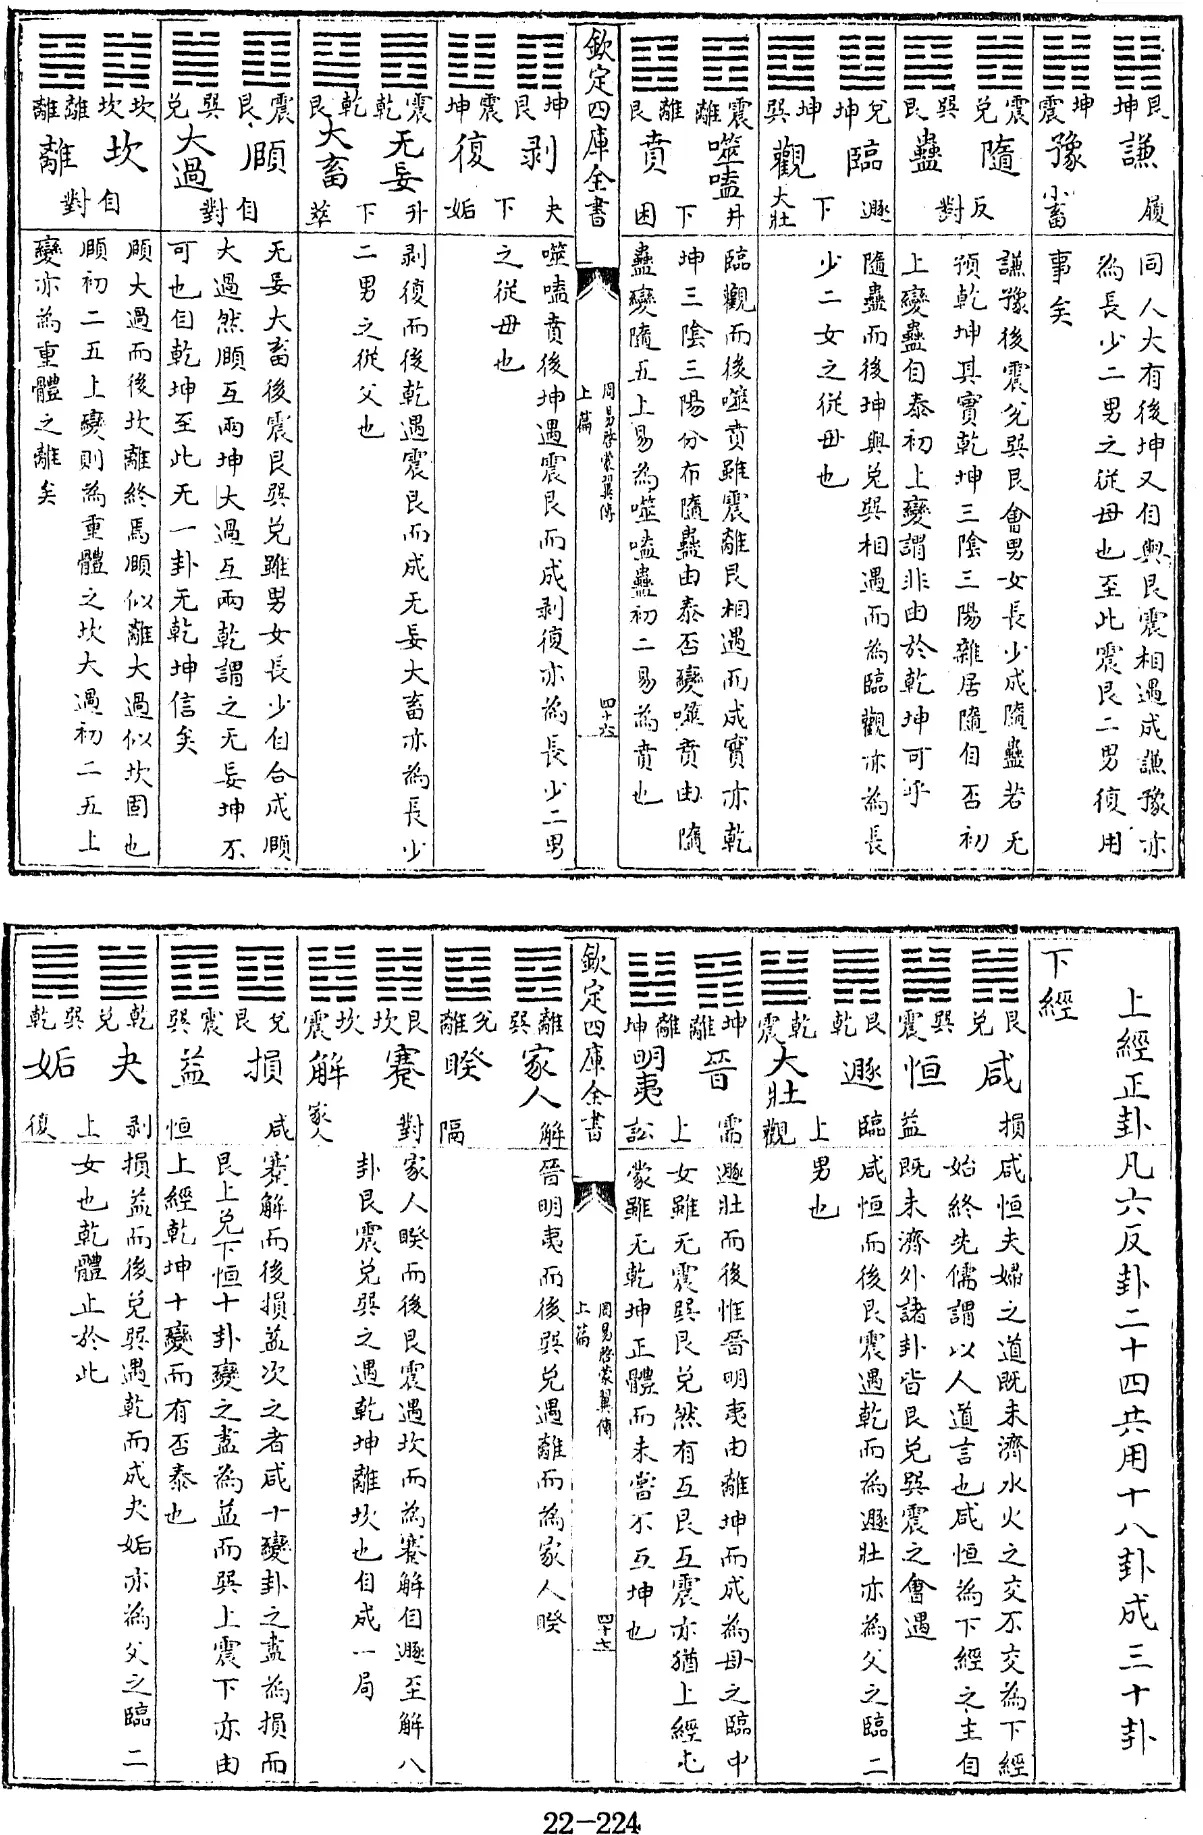 艮坤 謙 履
坤震 豫 小畜
同人大有後坤又自與艮震相遇成謙豫亦
為長少二男之從母也至此震艮二男復用
事矣
震兌 隨 反
巽艮 蠱 對
謙豫後震兌巽艮會男女長少成隨蠱若无
預乾坤其實乾坤三陰三陽雜居隨自否初
上變蠱自泰初上變謂非由於乾坤可乎
兌坤 臨 遯
坤巽 觀 大壯
下
隨蠱而後坤與兌巽相遇而為臨觀亦為長
少二女之從母也
震離 噬嗑 井
離艮 賁 困
下
臨觀而後噬賁雖震離艮相遇而成實亦乾
坤三陰三陽分布隨蠱由泰否變噬賁由隨
蠱變隨五上易為噬嗑蠱初二易為賁也
欽定四庫全書
周易啓蒙翼傳
上篇
四十六
坤艮 剝 夬
震坤 復 姤
下
噬嗑賁後坤遇震艮而成剝復亦為長少二男
之從母也
震乾 无妄 升
乾艮 大畜 萃
下
剝復而後乾遇震艮而成无妄大畜亦為長少
二男之從父也
震艮 頤 自
巽兌 大過 對
无妄大畜後震艮巽兌雖男女長少自合成頤
大過然頤互兩坤大過互兩乾謂之无妄坤不
可也自乾坤至此无一卦无乾坤信矣
坎坎 坎 自
離離 離 對
頤大過而後坎離終焉頤似離大過似坎固也
頤初二五上變則為重體之坎大過初二五上
變亦為重體之離矣
上經正卦凡六反卦二十四共用十八卦成三十卦
下經
艮兌 咸 損
巽震 恒 益
咸恒夫婦之道既未濟水火之交不交為下經
始終先儒謂以人道言也咸恒為下經之主自
既未濟外諸卦皆艮兌巽震之會遇
艮乾 遯 臨
乾震 大壯 觀
上
咸恒而後艮震遇乾而為遯壯亦為父之臨二
男也
坤離 晉 需
離坤 明夷 訟
上
遯壯而後惟晉明夷由離坤而成為母之臨中
女雖无震巽艮兌然有互艮互震亦猶上經屯
蒙雖无乾坤正體而未嘗不互坤也
欽定四庫全書
周易啓蒙翼傳
上篇
四十七
離巽 家人 解
兌離 睽 隔
晉明夷而後巽兌遇離而為家人睽
艮坎 蹇 對
坎震 解 家人
家人睽而後艮震遇坎而為蹇解自遯至解八
卦艮震兌巽之遇乾坤離坎也自成一局
兌艮 損 咸
震巽 益 恒
蹇解而後損益次之者咸十變卦之盡為損而
艮上兌下恒十卦變之盡為益而巽上震下亦由
上經乾坤十變而有否泰也
乾兌 夬 剝
巽乾 姤 復
上
損益而後兌巽遇乾而成夬姤亦為父之臨二
女也乾體止於此
22-224